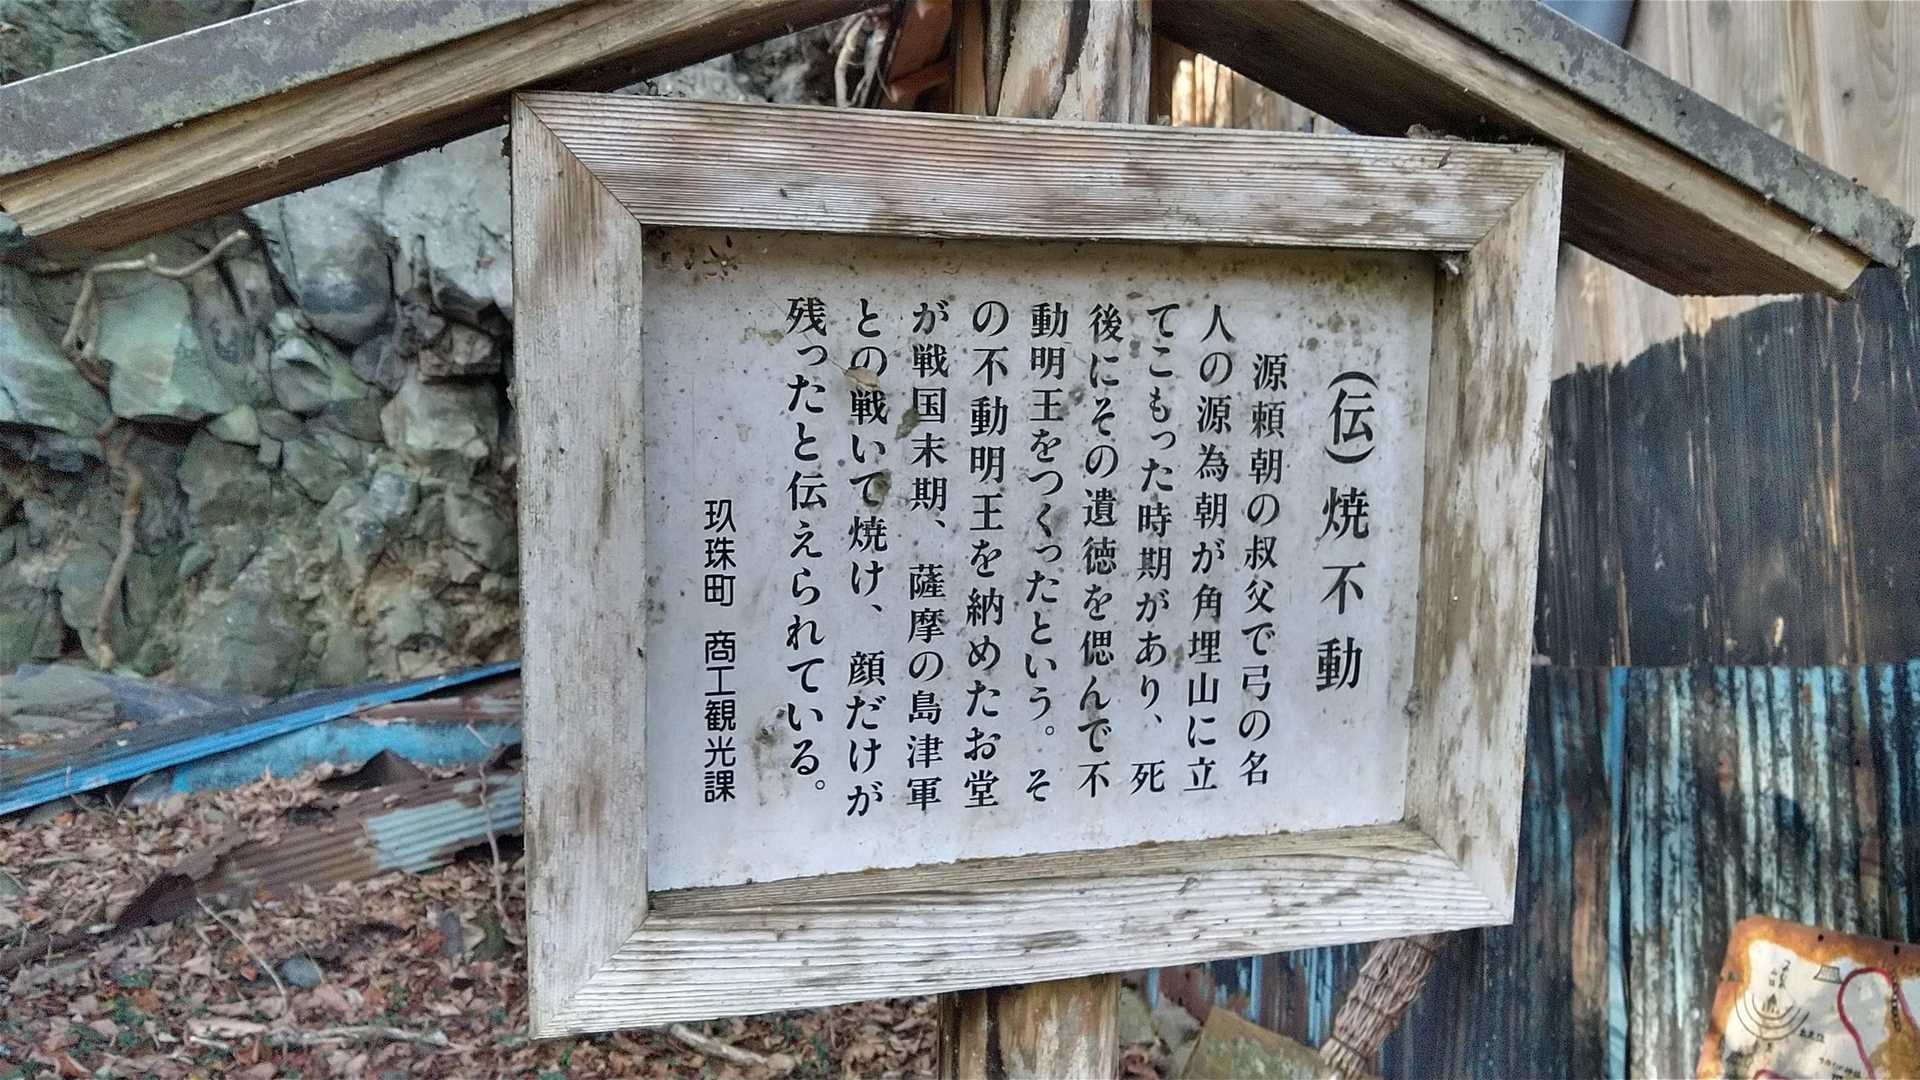 （伝）焼不動
源頼朝の叔父で弓の名
人の源為朝が角埋山に立
てこもった時期があり、死
後にその遺徳を偲んで不
動明王をつくったという。そ
の不動明王を納めたお堂
が戦国末期、薩摩の島津軍
との戦いて焼け、顔だけが
残ったと伝えられている。
玖珠町 商工観光課